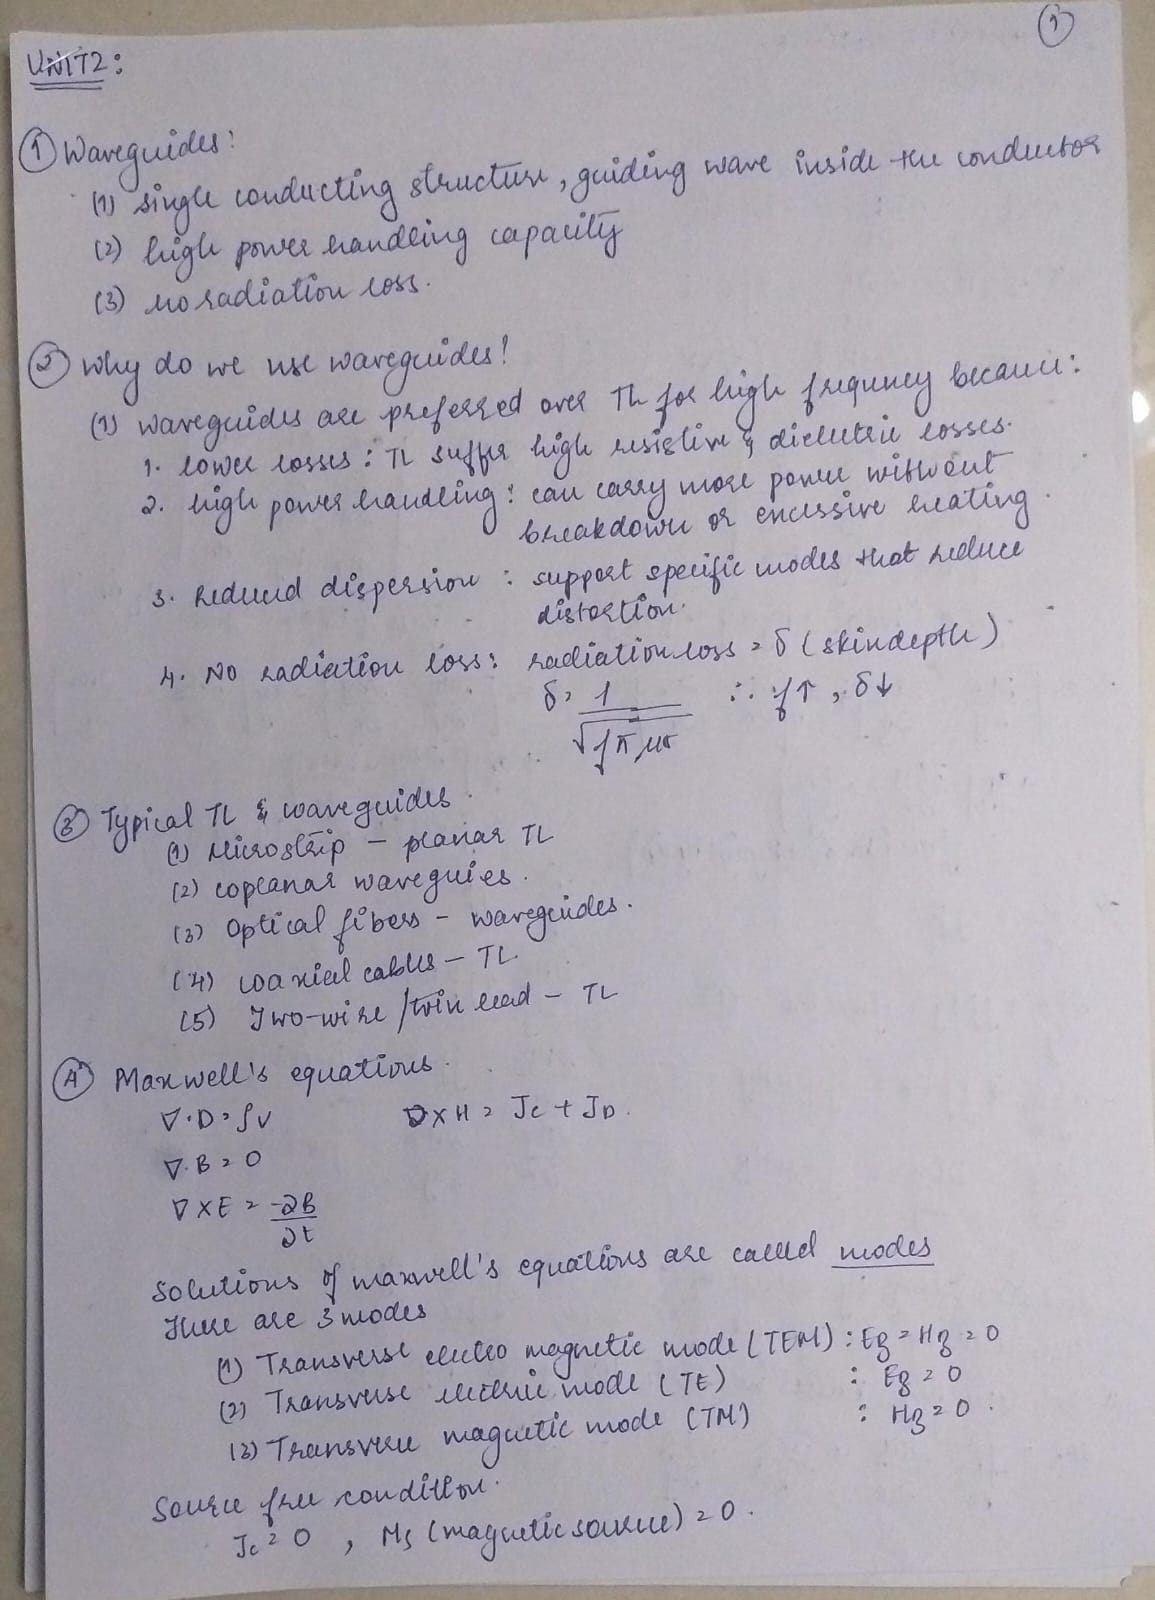 1
UNIT2:
1 Waveguides:
(1) single conducting structure, guiding wave inside the conductor
(2) high power handling capacity
(3) no radiation loss.
2 Why do we use waveguides?
(1) waveguides are preferred over TL for high frequency because:
1. lower losses: TL suffer high resistive & dielectric losses.
2. high power handling: can carry more power without
breakdown or excessive heating.
3. Reduced dispersion: support specific modes that reduce
distortion.
4. No radiation loss: radiation loss = δ (skindepth)
δ = 1/√fπμσ ∴ f↑, δ↓
3 Typical TL & waveguides.
(1) Microstrip - planar TL
(2) coplanar waveguies.
(3) Optical fibers - waveguides.
(4) coaxial cables - TL.
(5) Two-wire/twin lead - TL
4 Maxwell's equations.
∇·D = ρv ∇×H = Jc + JD.
∇·B = 0
∇×E = -∂B/∂t
Solutions of maxwell's equations are called modes
There are 3 modes
(1) Transverse electro magnetic mode (TEM) : Ez = Hz = 0
(2) Transverse electric mode (TE) : Ez = 0
(3) Transverse magnetic mode (TM) : Hz = 0.
Source free condition.
Jc = 0, Ms (magnetic source) = 0.